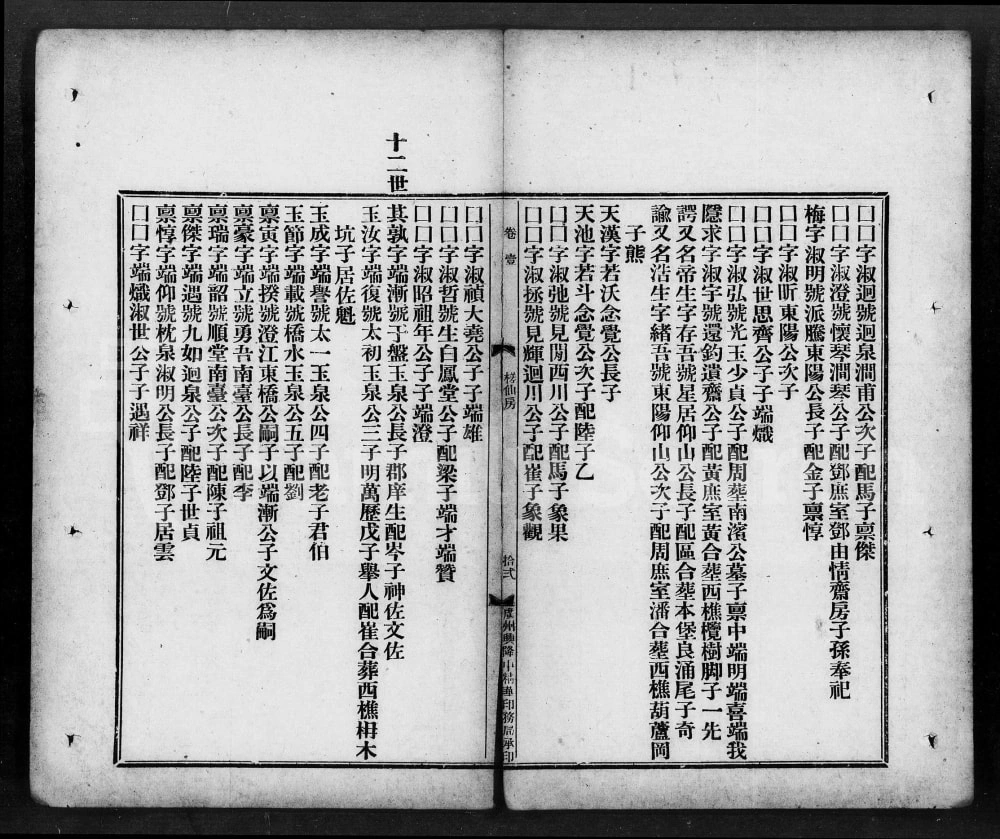 囗囗字淑迴號迴泉澗甫公次子配馬子禀傑
囗囗字淑澄號懷琴澗琴公子配鄧庶室鄧由情齋房子孫奉祀
梅字淑明號派騰東陽公長子配金子禀惇
囗囗字淑昕東陽公次子
囗囗字淑世思齊公子子端熾
囗囗字淑弘號光玉少貞公子配周葬南濱公墓子禀中端明端喜端我
隱求字淑字號還釣遺齋公子配黃庶室黃合葬西樵欖樹脚子一先
諤又名帝生字存吾號星居仰山公長子配區合葬本堡良涌尾子奇
諭又名浩生字緒吾號東陽仰山公次子配周庶室潘合葬西樵葫蘆岡
子熊
天漢字若沃念覺公長子
天池字若斗念覺公次子配陸子乙
囗囗字淑弛號見閒西川公子配馬子象果
囗囗字淑拯號見輝迴川公子配崔子象觀
卷壹
梣仙房
拾弍
廣州興隆中精華印務局承印
囗囗字淑禎大堯公子子端雄
囗囗字淑哲號生白鳳堂公子配梁子端才端贊
囗囗字淑昭祖年公子子端澄
十二世
其孰字端漸號于盤玉泉公長子郡庠生配岑子神佐文佐
玉汝字端復號太初玉泉公三子明萬歷戊子舉人配崔合葬西樵枏木
坑子居佐魁
玉成字端譽號太一玉泉公四子配老子君伯
玉節字端載號橋水玉泉公五子配劉
禀寅字端揆號澄江東橋公嗣子以端漸公子文佐爲嗣
禀豪字端立號勇吾南臺公長子配李
禀瑞字端韶號順堂南臺公次子配陳子祖元
禀傑字端遇號九如迴泉公子配陸子世貞
禀惇字端仰號枕泉淑明公長子配鄧子居雲
囗囗字端熾淑世公子子遇祥